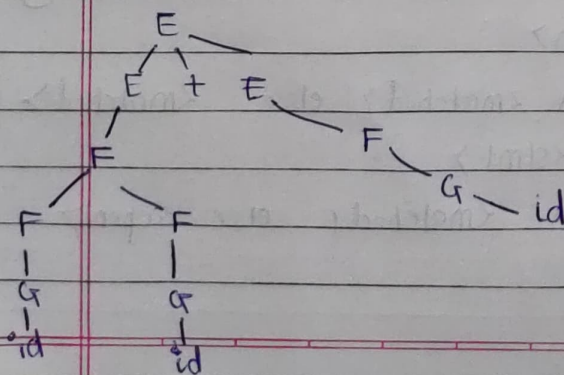 E
E + E
F F
G id
F F
G G
id id